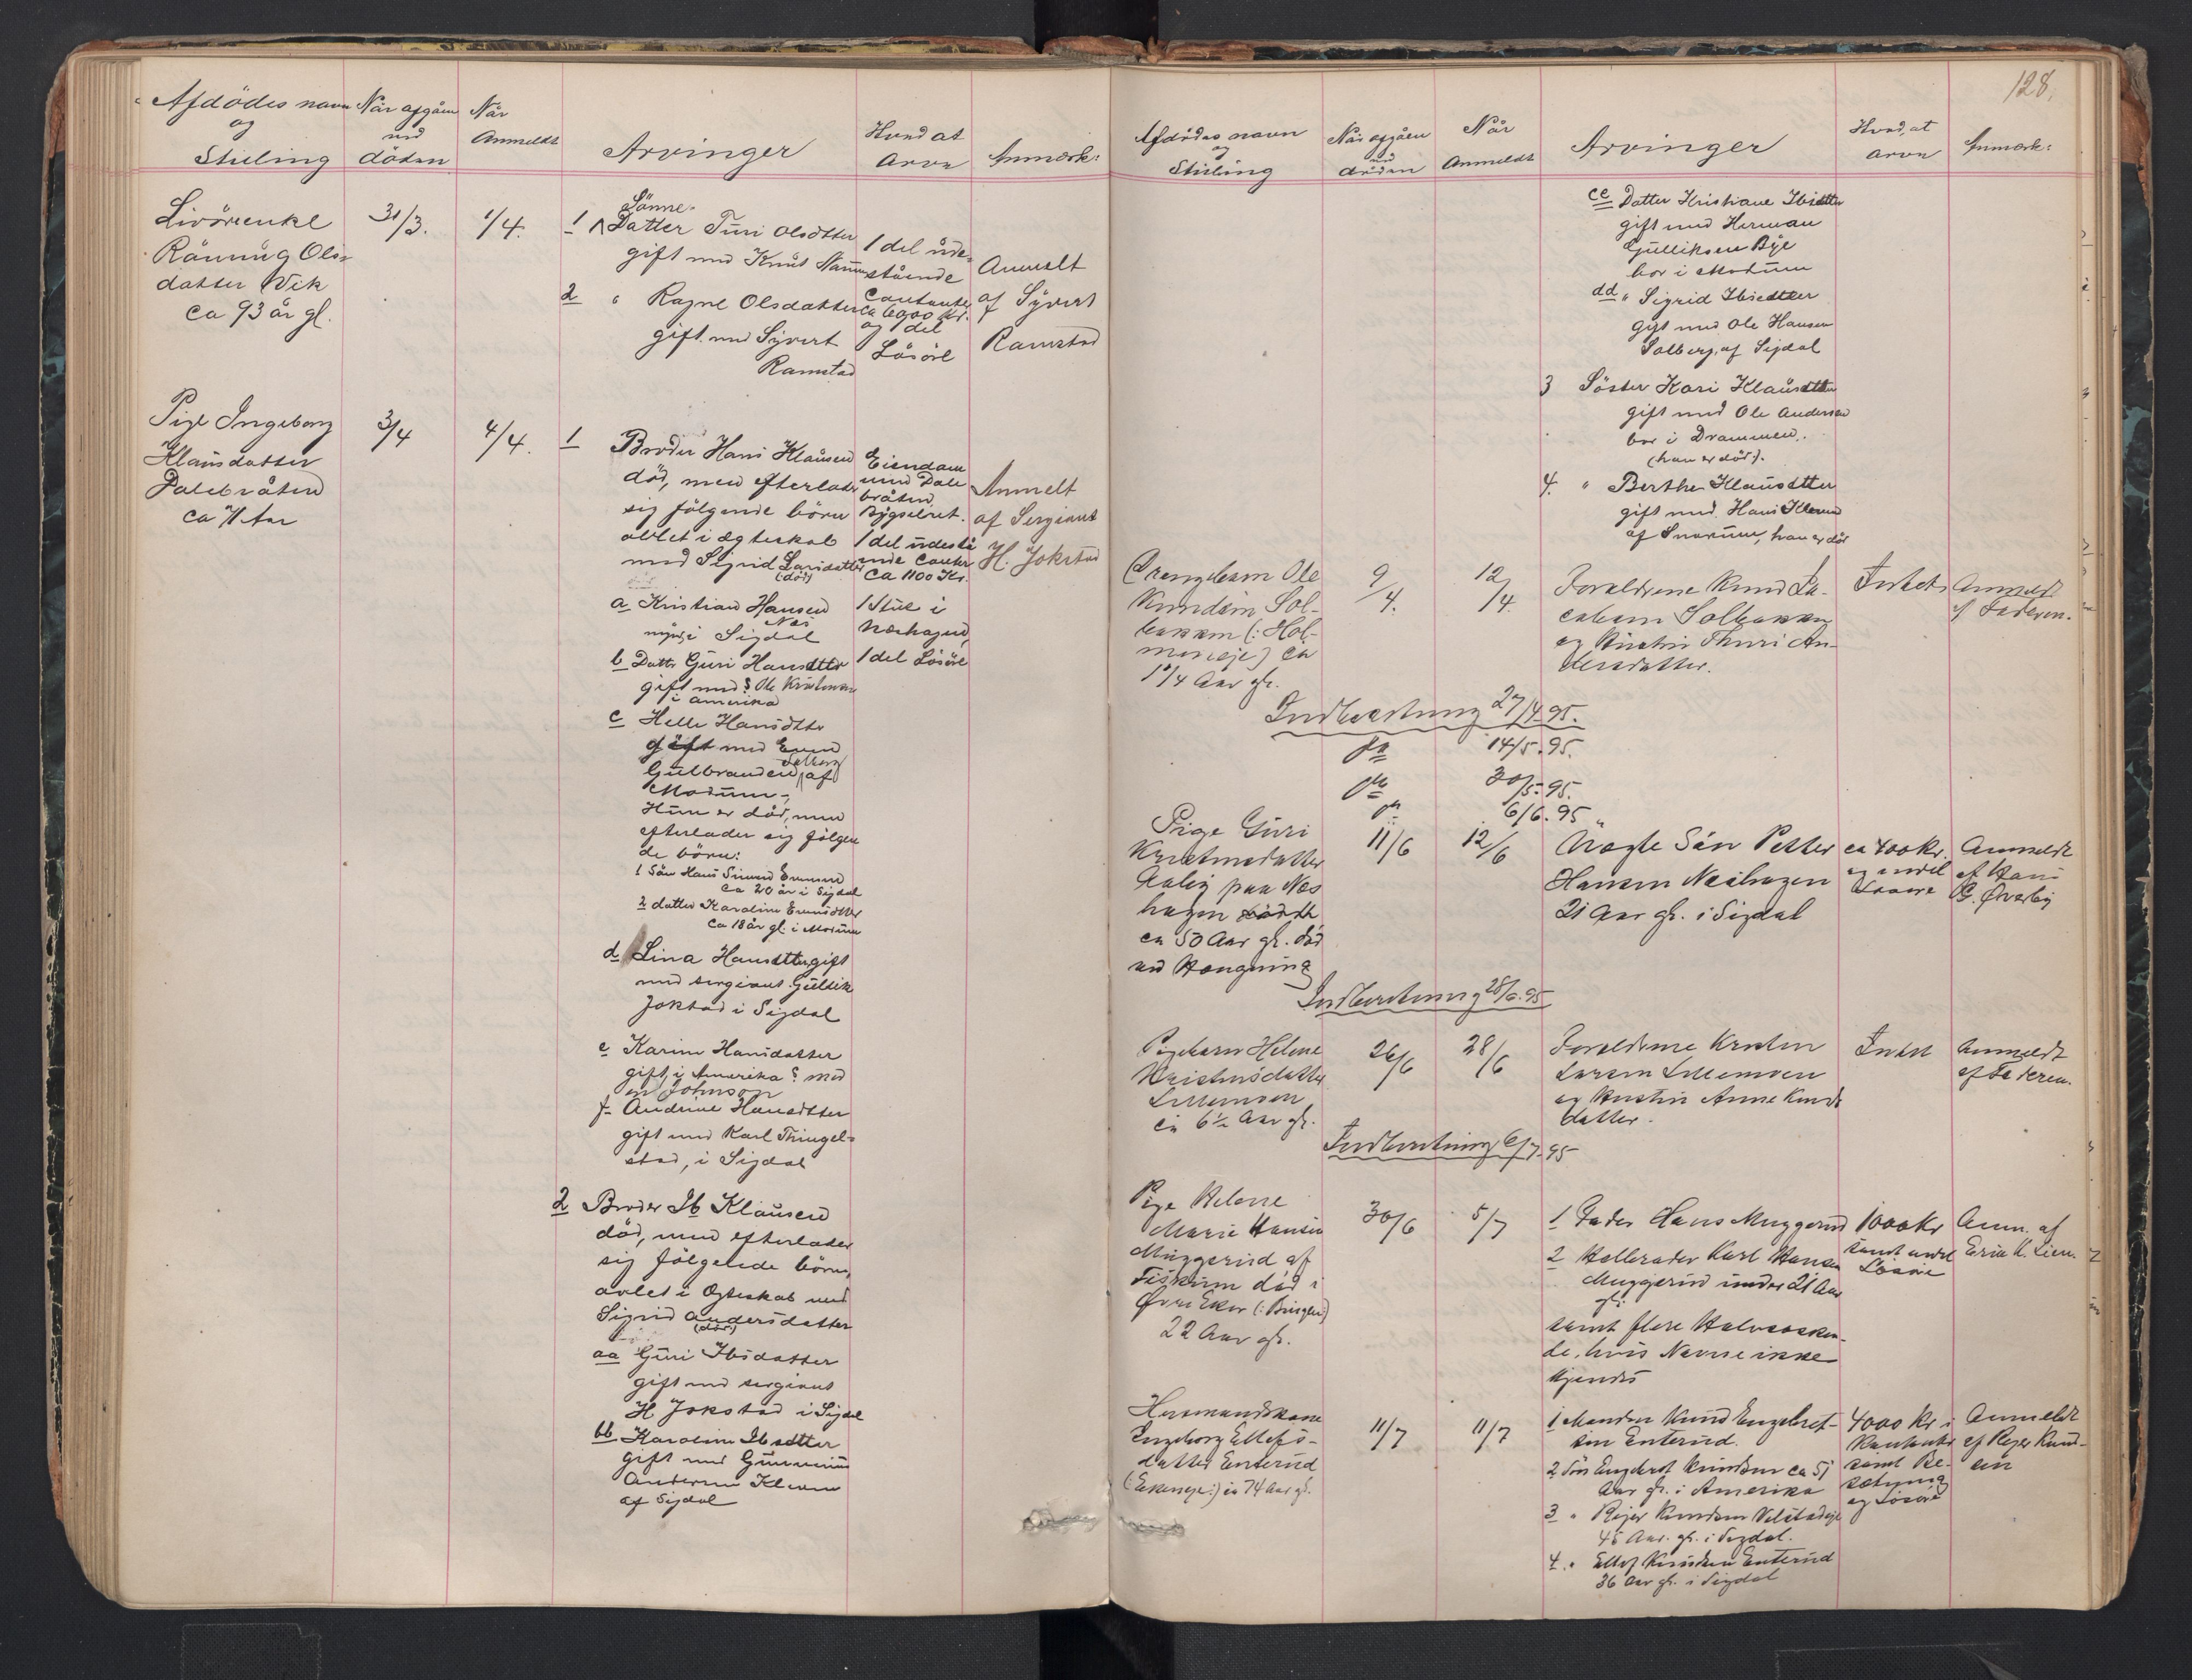 Afdödes navn
og
Stilling
Når afgåen
ved
döden
Når
Anmeldt
Arvinger
Hvad at
arve
Anmærk:
Livörenke
Rönnüg Ols-
datter Vik
Ca 93 år gl.
31/3.
1/4.
Sönne-
1 Datter Türi Olsdtter
gift med Knüt
2 " Ragne Olsdatter
gift med Syvert
Ramstad
1 del üde-
stående
ca 6000 Kr.
og 1 del
Lösöre
Anmelt
af Syvert
Ramstad
Pige Ingeborg
Klausdatter
Dalebråten
Ca 71 Aar
3/4
4/4.
1 Broder Hans Klaüsen
död, men efterlader
sig fölgende börn
avlet i ægteskab
med Sigrid Larsdatter
(död)
a Kristian Hansen
Næs
i Sigdal
b Datter Güri Hansdtter
gift med ? Ole Kristensen
i Amerika
c Helle Hansdtter
gift med Even
Solberg
Gülbrandsen af
Modum -
Hün er död, men
efterlader sig fölgen
de börn:
1 Sön Hans Evensen
Ca 20 år i Sigdal
2 datter Karoline Evensdtter
Ca 18 år gl. i Modum
d Lina Hansdtter gift
med sergiant Güllik
Jokstad i Sigdal
e Karine Hansdatter
gift i Amerika ? med
en Johnson
f- Andrine Hansdtter
gift med Karl Thingel-
stad, i Sigdal
2 Broder Ib Klaüsen
död, men efterlader
sig fölgende börn,
avlet i Ægteskab med
Sigrid Andersdatter
(död)
aa Güri Ibsdatter
gift med sergiant
H Jokstad i Sigdal
bb Karoline Ibsdtter
gift med
Andersen
af Sigdal
Eiendom
men Dale
bråten
Bygselret.
1 del üdestå
ende
Ca 1100 Kr.
1 Stük i
Næshagen,
1 del Lösöre
Anmelt
af Sergiant
H. Jokstad
128.
Afdödes navn
og
Stilling
Når afgåen
ved
döden
Når
Anmeldt
Arvinger
Hvad, at
arve
Anmærk:
cc Datter Kristiane Ibsdtter
gift med Herman
Gülliksen Bye
bor i Modüm
dd " Sigrid Ibsdtter
gift med Ole Hansen
Solberg, af Sigdal
3 Söster Kari Klaüsdtter
gift med Ole Andersen
bor i Drammen,.
(han er död).
4. " Berthe Klausdtter
gift med Hans
af Snarüm, han er död
Drengebarn Ole
Knudsen Sol-
bakken (: Hol-
meneje) Ca
1¼ Aar gl.
9/4.
12/4.
Forældrene Knud Ja-
cobsen Solbakken
og Hustru Thuri An-
dersdatter.
Intet
Anmeldt
af Faderen.
Indberetning 27/4 95.
do 14/5.95.
do 30/5.95.
do 6/6.95
Pige Guri
Kristensdatter
paa Næs
hagen
ca 50 Aar gl. död
ved Hængning
11/6
12/6
Uægte Sön Petter
Hansen Næshagen
21 Aar gl. i Sigdal
ca 400 Kr.
og endel
Lösöre
Anmeldt
af Hans
G. Överby
Indberetning 28/6.95
Pigebarn Helene
Kristensdatter
Lillemoen
ca 6½ Aar gl.
26/6
28/6
Forældrene Kristen
Larsen Lillemoen
og Hustru Anne Knuds
datter.
Intet
Anmeldt
af Faderen.
Indberetning 6/7.95
Pige Helene
Marie Hansen
Muggerud af
Fiskum död i
Øvre Eker (: Bingen:)
22 Aar gl.
30/6
5/7
1 Fader Hans Muggerud
2 Halbroder Karl Hansen
Muggerud under 21 Aar
gl.
samt flere Halvsösken-
de, hvis Navne ikke
kjendes
1000 Kr
samt endel
Lösöre
Anm. af
Erik K. Lien.
Huusmandskone
Engeborg Ellefs-
datter Enterud
(: Ekeneje:) ca 74 Aar gl.
11/7
11/7
1 Manden Knud Engebret-
sen Enterud.
2 Sön Engebret Knudsen ca 51
Aar gl. i Amerika
3 " Rejer Knudsen
45 Aar. gl. i Sigdal.
4. " Ellef Knudsen Enterud
36 Aar gl. i Sigdal
4000 Kr i
Kontanter
samt Be-
sætning
og Lösöre
Anmeldt
af Rejer Knud-
sen